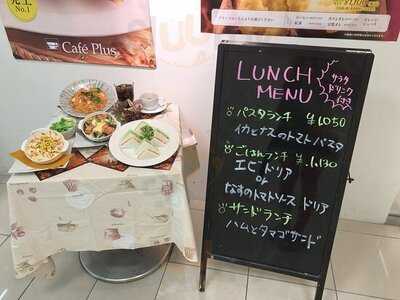 No.1
Café Plus
LUNCH
MENU
サラダ
ドリンク
付き
パスタランチ ¥1050
イカとナスのトマトパスタ
ごはんランチ ¥1,130
エビドリア
or
なすのトマトソース ドリア
サンドランチ
ハムとタマゴサンド